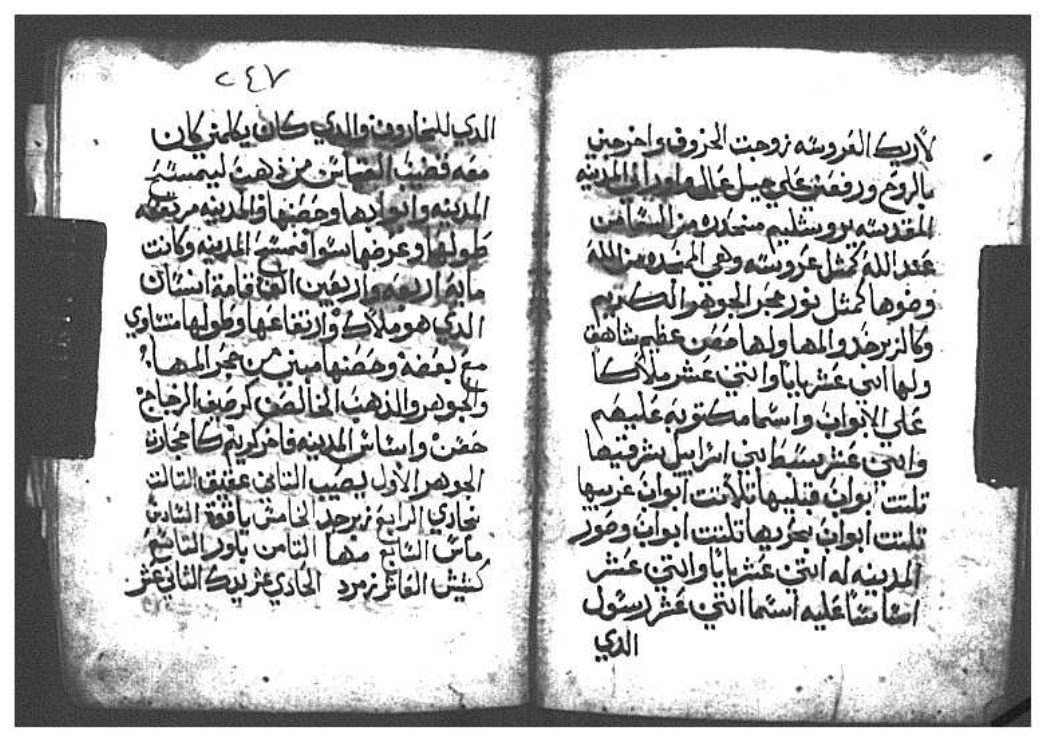 لاريك العروسه زوجت الخروف واخرجني
بالروح ورفعني علي جبل عال واوراني المدينه
المقدسه يروشليم منحدره من السما من
عند الله كمثل عروسه وهي المنيره من الله
وضوها كمثل نور حجر الجوهر الكريم
وكالزبرجد والمها ولها حصن عظيم شاهق
ولها اتنى عشر بابا واتني عشر ملاكا
علي الابواب واسما مكتوبه عليهم
واتني عشر سبط بني اسراييل شرقيها
تلتت ابواب قبليها تلاتت ابواب غربيها
تلتت ابواب بحريها تلتت ابواب وصور
المدينه له اتني عشر بابا واتني عشر
اساسا عليه اسما اتني عشر رسول
الدي
٢٤٧
الدي للخاروف والدي كان يكلمني كان
معه قضيب القياس من ذهب ليمسح
المدينه وابوابها وحصنها والمدينه مربعه
طولها وعرضها سوا فمسح المدينه وكانت
مايه اربعه واربعين الفا قامة انسان
الدي هو ملاك وارتفاعها وطولها متساوي
مع بعضه وحصنها مبني من حجر المها
والجوهر والذهب الخالص كرصف الزجاج
حصن واساس المدينه فاخر كريم كا حجارت
الجوهر الاول يصب التاني عقيق التالت
نجادي الرابع زبرجد الخامس ياقوة السادس
ماس السابع مها التامن بلور التاسع
العاشر زمرد الحادي عشر التاني عشر